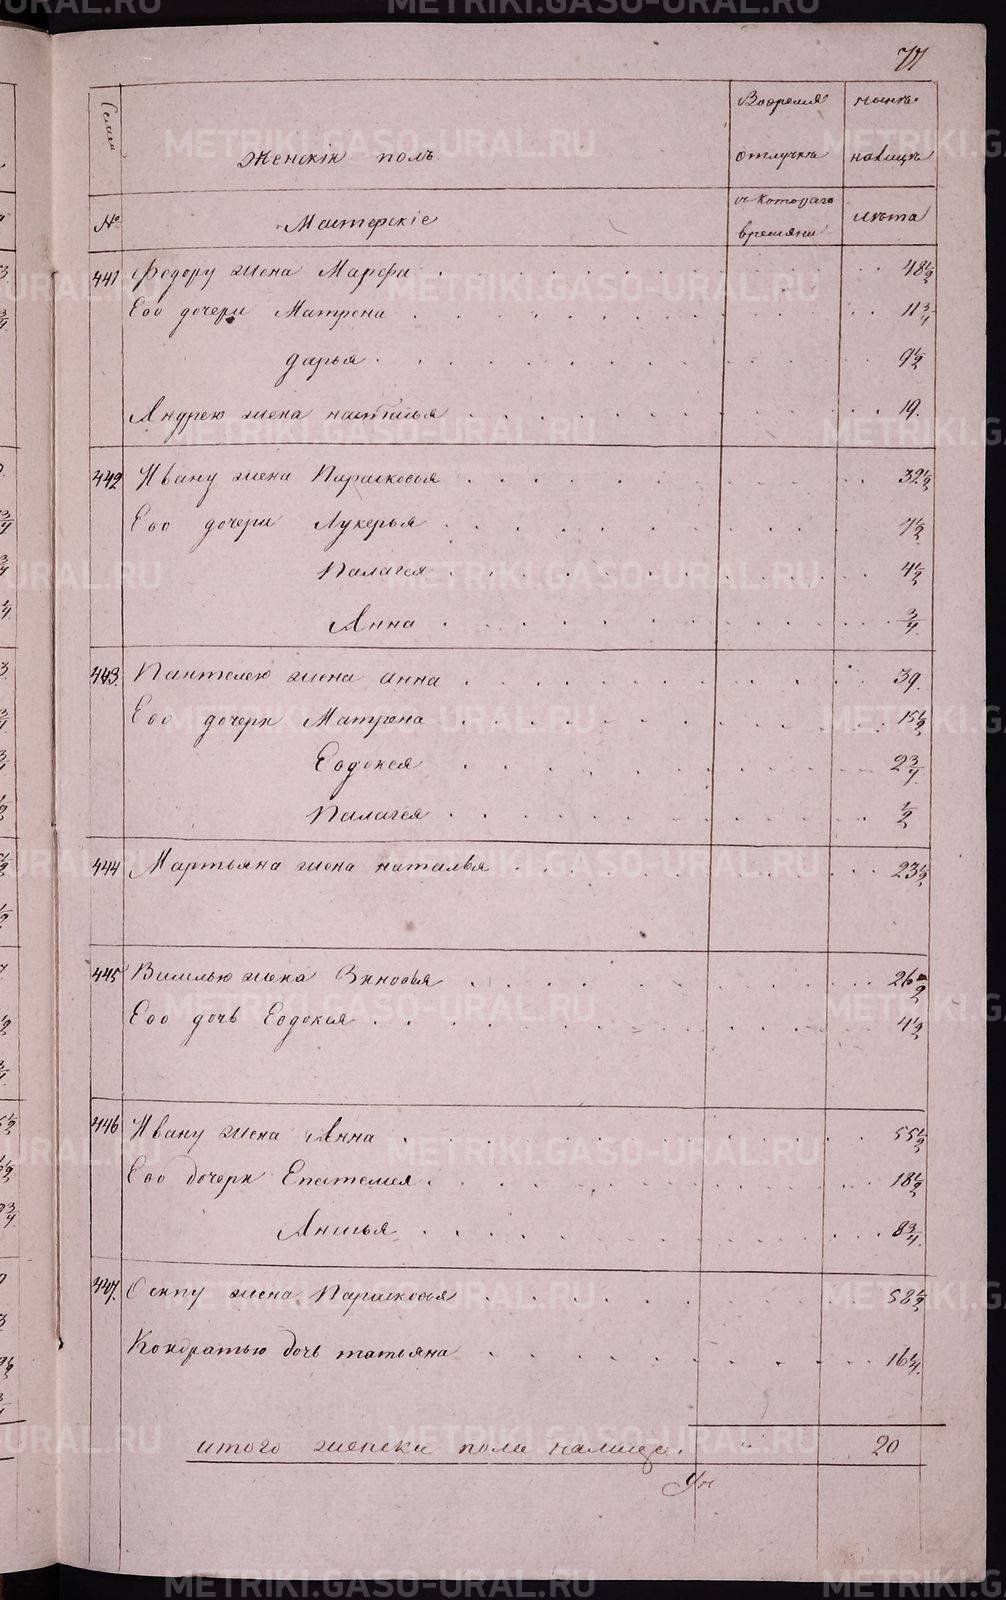 METRIKI.GASO-URAL.RU
77
Семьи
Женскій полъ
Во время
отлучкѣ
нынѣ
налицѣ
№
Мастерскіе
съ котораго
времяни
лѣта
441 Федору жена Марфа . . . 48 1/2
Ево дочери Матрена . . . 11 3/4
дарья . . . 9 1/2
Андрею жена настасья . . . 19.
442 Ивану жена Парасковья . . . 32 1/2
Ево дочери Лукерья . . . 7 1/2
Палагея . . . 4 1/2
Анна . . . 3/4
443. Пантелею жена анна . . . 39.
Ево дочери Матрена . . . 15 1/2
Евдокея . . . 2 3/4
Палагея . . . 1/2
444 Мартьяна жена наталья . . . 23 1/2
445 Василью жена Зиновья . . . 26 1/2
Ево дочь Евдокея . . . 4 1/2
446 Ивану жена Анна . . . 55 1/2
Ево дочери Епестемея . . . 18 1/2
Анисья . . . 8 3/4
447. Осипу жена Парасковья . . . 58 1/2
Кондратью дочь татьяна . . . 16 1/4.
итого женска пола налицо. „ 20